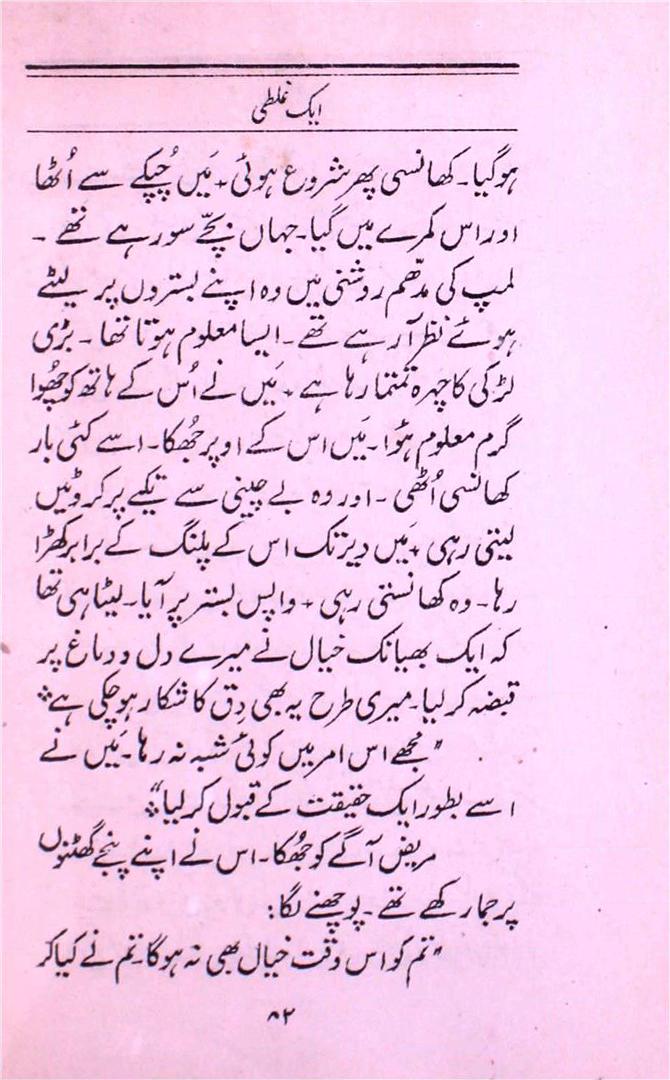 ایک غلطی
ہوگیا۔ کھانسی پھر شروع ہوئی + مَیں چُپکے سے اُٹھا
اور اس کمرے میں گیا۔ جہاں بچّے سو رہے تھے ۔
لمپ کی مدّھم روشنی میں وہ اپنے بستروں پر لیٹے
ہوئے نظر آ رہے تھے ۔ ایسا معلوم ہوتا تھا ۔ بڑی
لڑکی کا چہرہ تمتما رہا ہے + مَیں نے اُس کے ہاتھ کو چھُوا
گرم معلوم ہؤا۔ مَیں اس کے اوپر جھُکا۔ اسے کئی بار
کھانسی اُٹھی ۔ اور وہ بے چینی سے تکیے پر کروٹیں
لیتی رہی + مَیں دیر تک اس کے پلنگ کے برابر کھڑا
رہا۔ وہ کھانستی رہی + واپس بستر پر آیا۔ لیٹا ہی تھا
کہ ایک بھیانک خیال نے میرے دل و دماغ پر
قبضہ کر لیا۔ میری طرح یہ بھی دِق کا شکار ہو چکی ہے ⁘
”مجھے اس امر میں کوئی شبہ نہ رہا۔ مَیں نے
اسے بطور ایک حقیقت کے قبول کر لیا“⁘
مریض آگے کو جھُکا۔ اس نے اپنے پنجے گھٹنوں
پر جما رکھے تھے ۔ پوچھنے لگا:
”تم کو اس وقت خیال بھی نہ ہوگا۔ تم نے کیا کر
۸۲